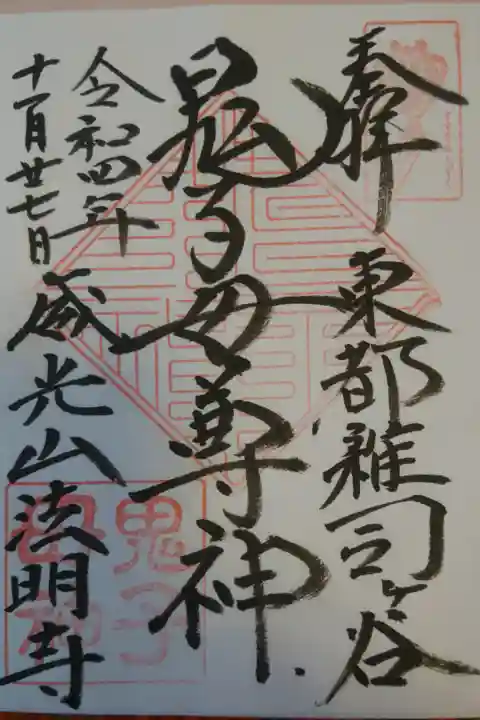 奉拝
東都雑司ヶ谷
鬼子母尊神
令和四年
十一月廿七日
威光山法明寺
鬼子
母神